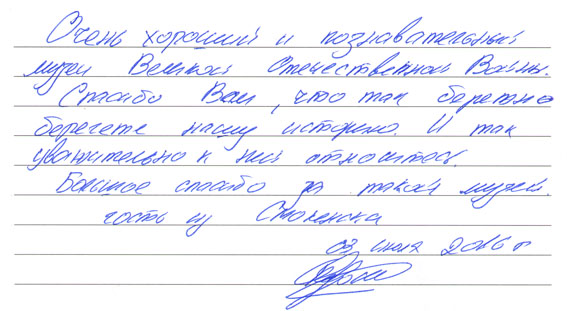 Очень хороший и познавательный
музей Великой Отечественной Войны.
Спасибо Вам, что так бережно
бережете нашу историю. И так
уважительно к ней относитесь.
Большое спасибо за такой музей.
гость из Смоленска
03 июля 2016 г